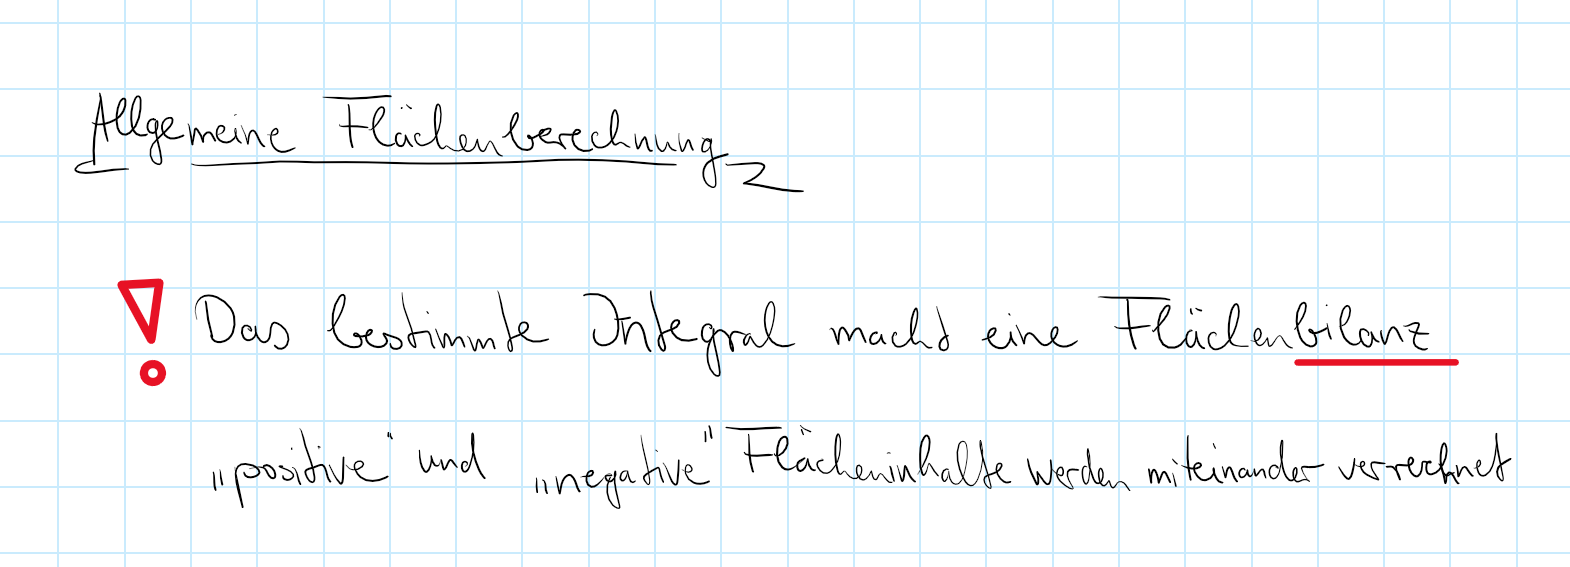 Allgemeine Flächenberechnung
Das bestimmte Integral macht eine Flächenbilanz
„positive“ und „negative“ Flächeninhalte werden miteinander verrechnet